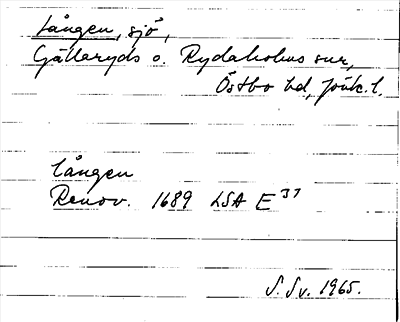 Lången, sjö,
Gällaryds o. Rydaholms snr,
Östbo hd, Jönk. l.
Lången
Renov. 1689 LSA E 37
S. Sv. 1965.